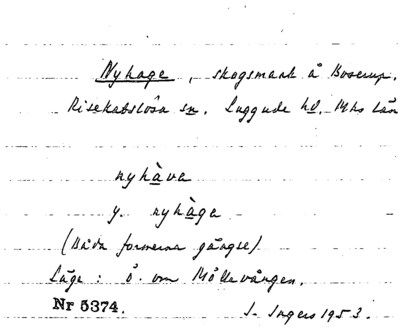 Nyhage, skogsmark å Boserup.
Risekatslösa sn. Luggude hd. Mhs län
nyhàva
y. nyhàga
(Båda formerna gängse)
Läge: ö. om Möllevången.
Nr 5374.
I. Ingers 1953.